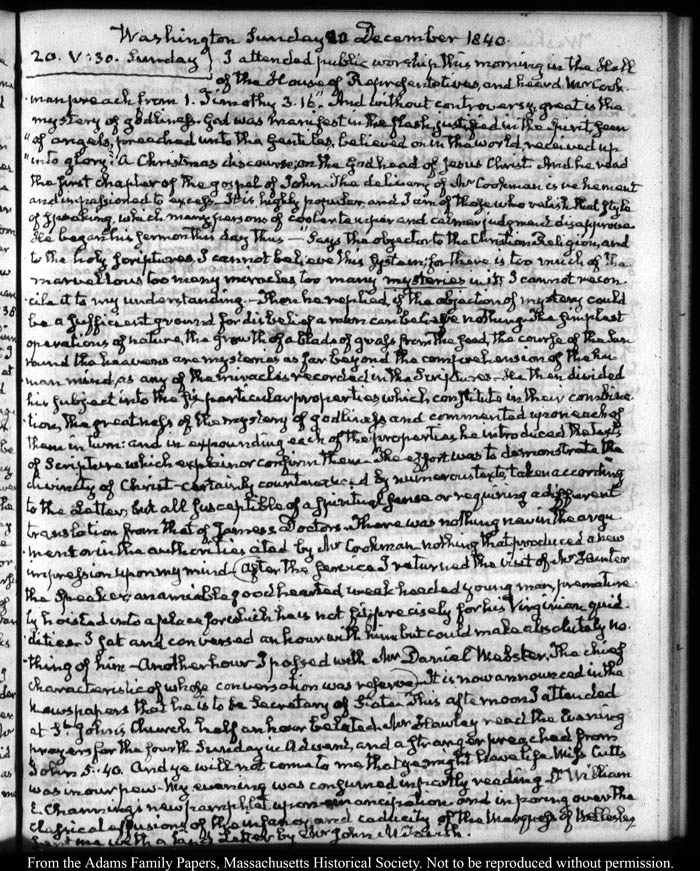 Washington Sunday 20 December 1840.
20. V:30. Sunday} I attended public worship this morning in the Hall
of the House of Representatives, and heard Mr Cook-
man preach from 1. Timothy 3.16. "And without controversy, great is the
mystery of godliness: God was manifest in the flesh, justified in the Spirit, seen
"of angels, preached unto the Gentiles, believed on in the world, received up
"into glory." A Christmas discourse, on the Godhead of Jesus Christ. And he read
the first chapter of the gospel of John. The delivery of Mr Cookman is vehement
and impassioned to excess. It is highly popular and I am of those who relish that style
of speaking, which many persons of cooler temper and calmer judgment disapprove
He began his sermon this day thus—"Says the objector to the Christian Religion, and
to the holy scriptures, I cannot believe this System; for there is too much of the
marvellous too many miracles too many mysteries in it; I cannot recon-
cile it to my understanding—Then he replied, if the objection of mystery could
be a sufficient ground for disbelief a man can believe nothing. The simplest
operations of nature, the growth of a blade of grass from the seed, the course of the Sun
round the heavens are mysteries as far beyond the comprehension of the hu-
man mind, as any of the miracles recorded in the Scriptures. He then divided
his subject into the six particular properties which constitute in their combina-
tion, the greatness of the mystery of godliness and commented upon each of
them in turn: and in expounding each of the properties he introduced the texts
of Scripture which explain or confirm them. The effort was to demonstrate the
divinity of Christ—certainly countenanced by numerous texts, taken according
to the Letter, but all susceptible of a spiritual sense or requiring a different
translation from that of James's Doctors. There was nothing new in the argu-
ment or in the authorities cited by Mr Cookman—nothing that produced a new
impression upon my mind—After the service I returned the visit of Mr Hunter
the Speaker; an amiable good hearted weak headed young man, premature-
ly hoisted into a place for which he is not fit, precisely for his Virginian quid-
dities. I sat and conversed an hour with him but could make absolutely no-
thing of him—Another hour I passed with Mr Daniel Webster. The chief
characteristic of whose conversation was reserve. It is now announced in the
Newspapers that he is to be Secretary of State. This afternoon I attended
at St. John's Church half an hour belated. Mr Hawley read the Evening
prayers for the fourth Sunday in Advent, and a stranger preached from
John 5.40. And ye will not come to me that ye might have life. Miss Cutts
was in our pew. My evening was consumed in partly reading Dr William
E. Channing's new pamphlet upon emancipation and in poring over the
classical effusions of the infancy and caducity of the Marquess of Wellesley
sent me with a Letter by Mr John
From the Adams Family Papers, Massachusetts Historical Society. Not to be reproduced without permission.